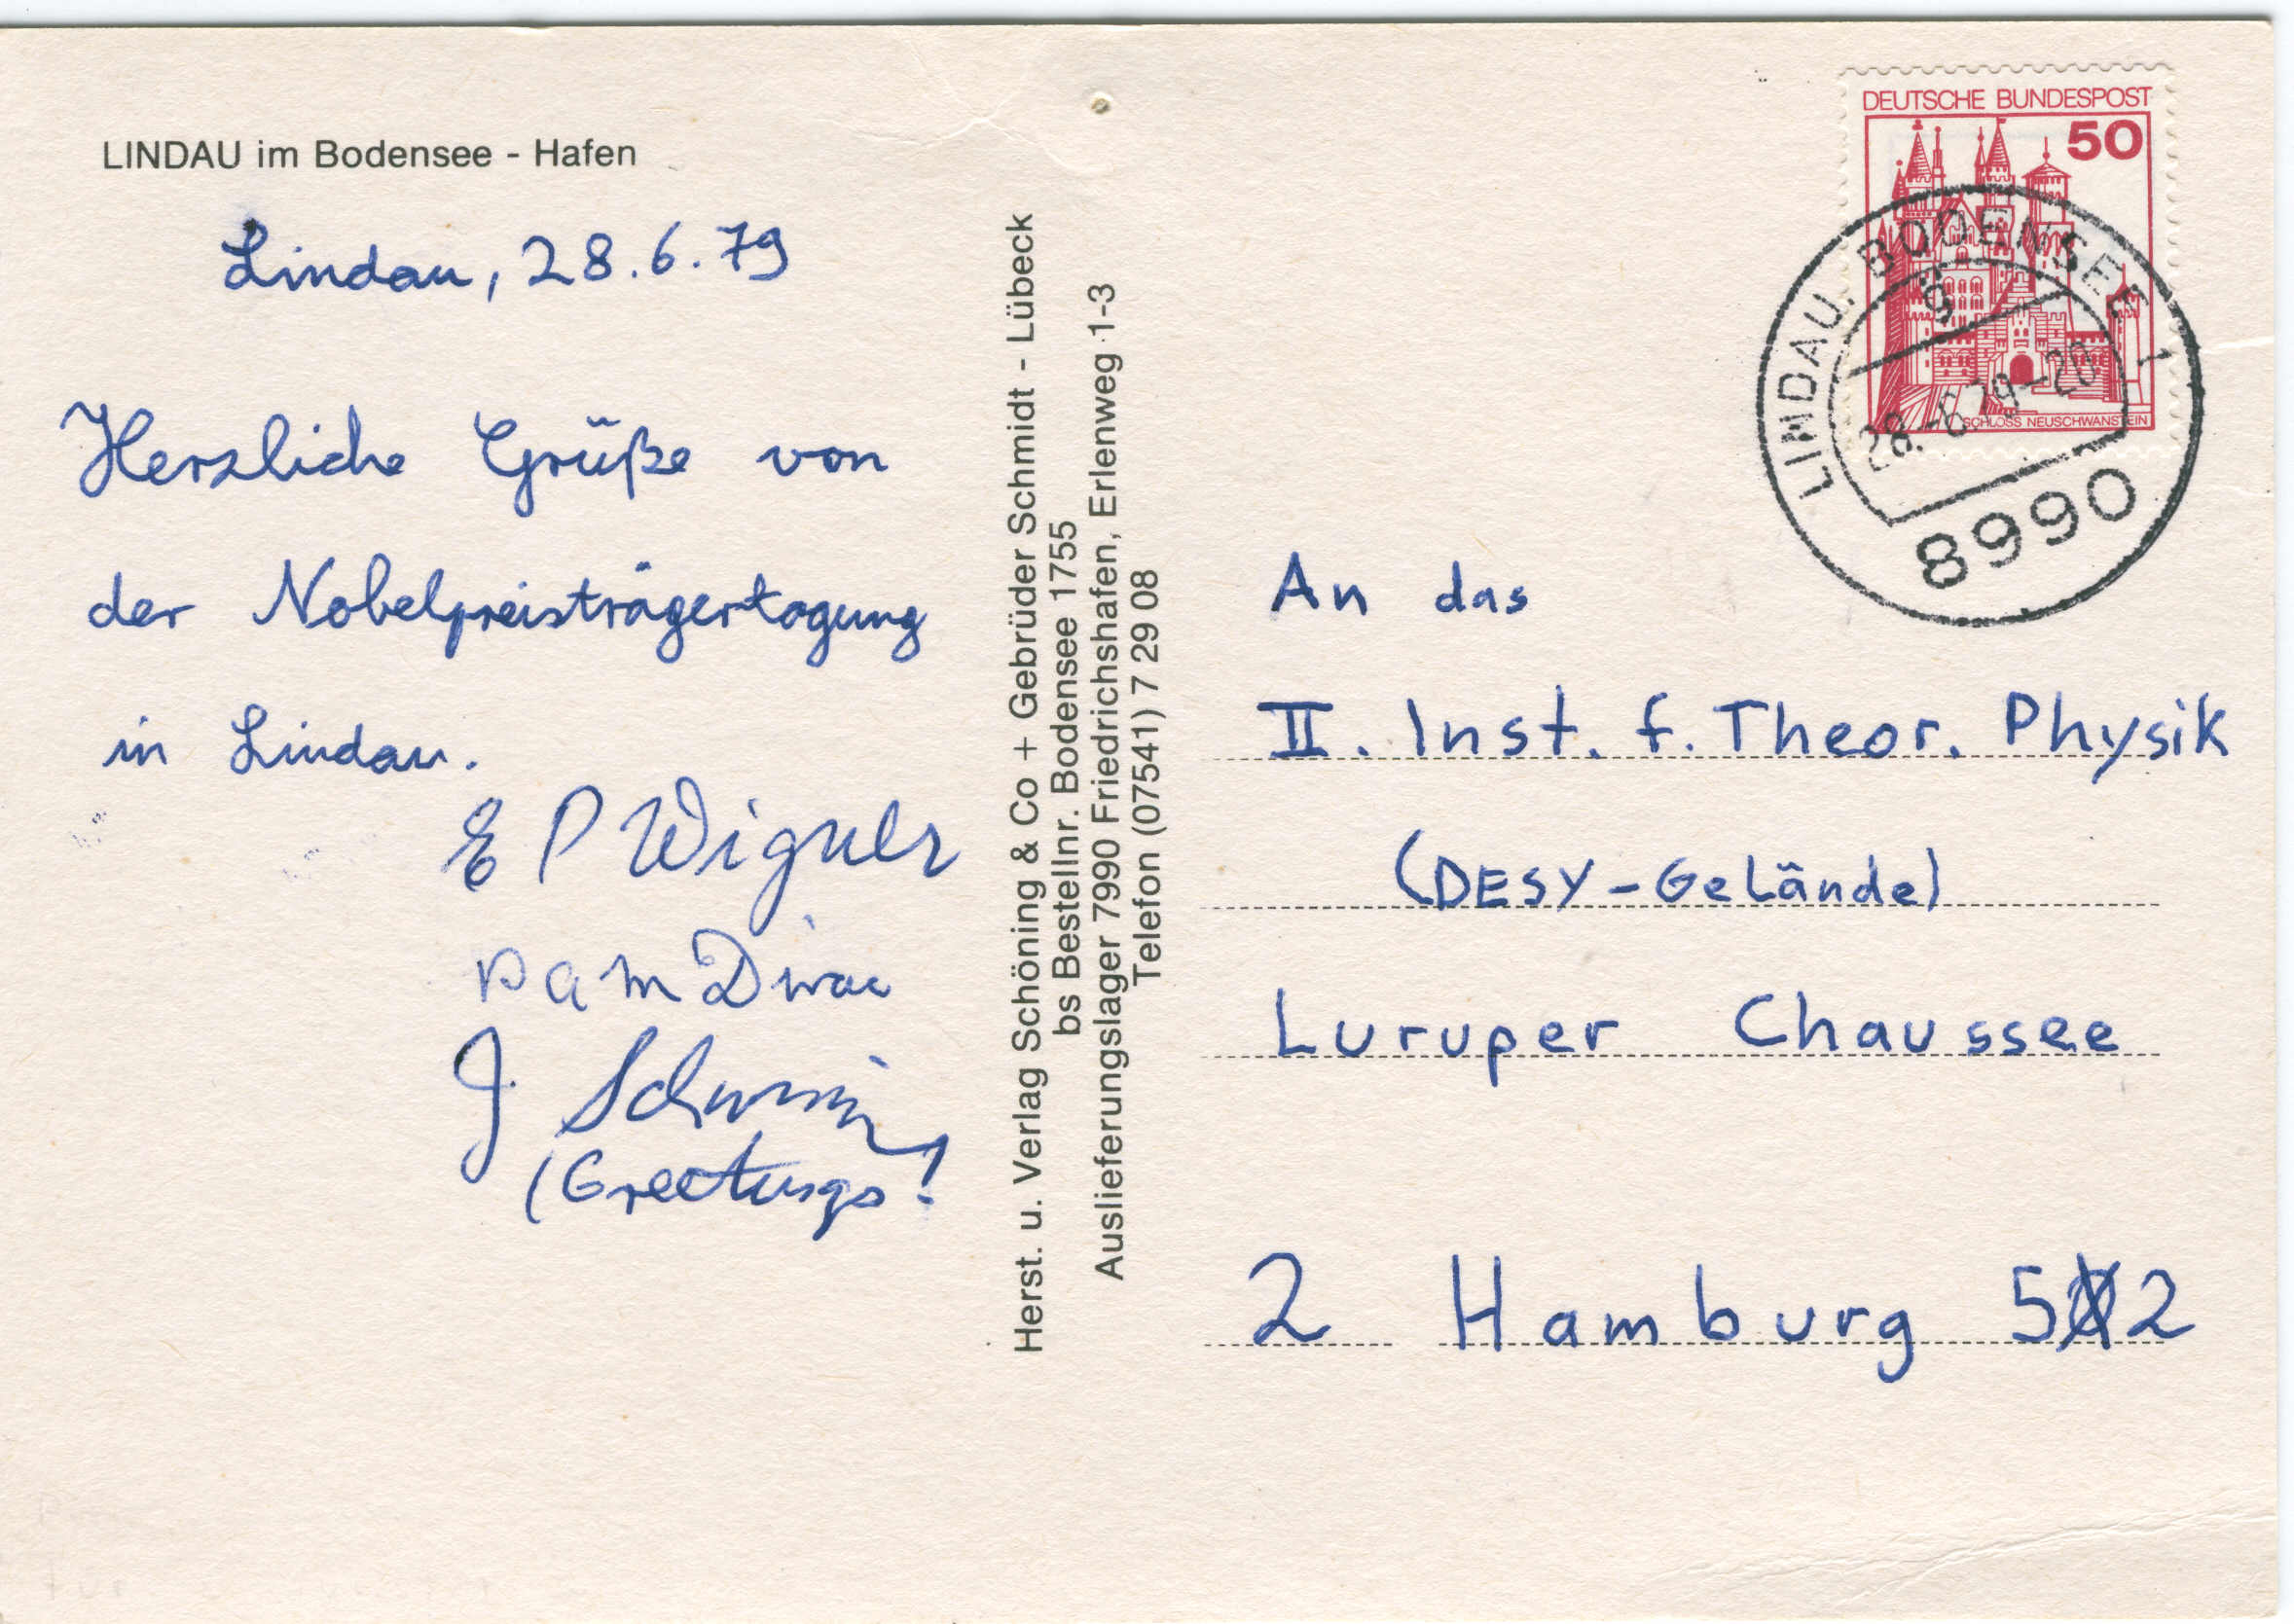 LINDAU im Bodensee - Hafen
Lindau, 28.6.79
Herzliche Grüße von
der Nobelpreisträgertagung
in Lindau.
E P Wigner
P A M Dirac
J Schwinger
(Greetings!
Herst. u. Verlag Schöning & Co + Gebrüder Schmidt - Lübeck
bs Bestellnr. Bodensee 1755
Auslieferungslager 7990 Friedrichshafen, Erlenweg 1-3
Telefon (07541) 7 29 08
DEUTSCHE BUNDESPOST
50
SCHLOSS NEUSCHWANSTEIN
LINDAU, BODENSEE 1
g
28.-6.79-20
8990
An das
II. Inst. f. Theor. Physik
(DESY-Gelände)
Luruper Chaussee
2 Hamburg 52